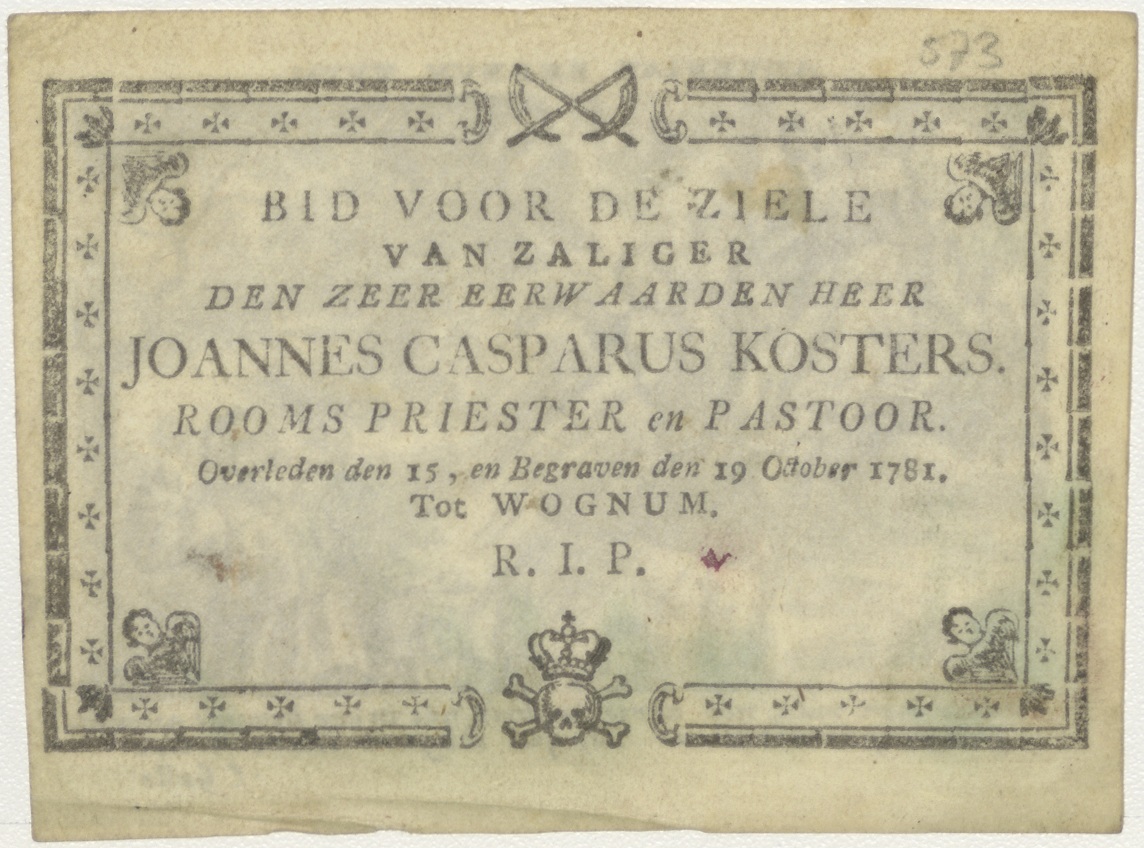 573
BID VOOR DE ZIELE
VAN ZALIGER
DEN ZEER EERWAARDEN HEER
JOANNES CASPARUS KOSTERS.
ROOMS PRIESTER en PASTOOR.
Overleden den 15, en Begraven den 19 October 1781.
Tot WOGNUM.
R. I. P.